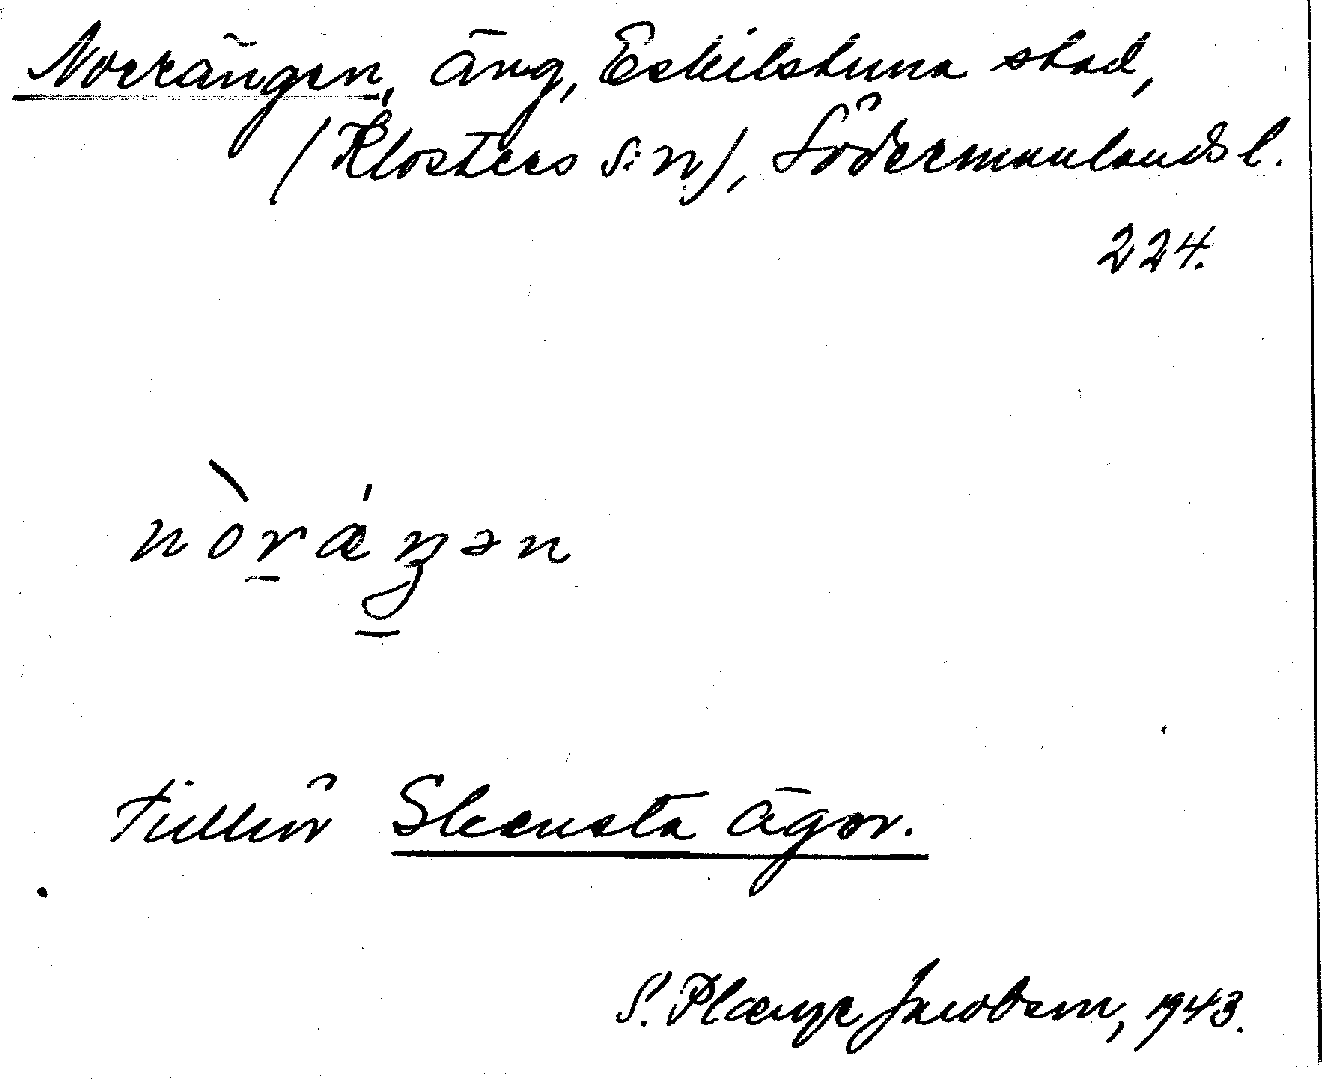 Norrängen, äng, Eskilstuna stad,
(Klosters s:n), Södermanlands l.
224.
nòrǽŋən
Tillhör Skensta ägor.
S. Plænge Jacobson, 1943.